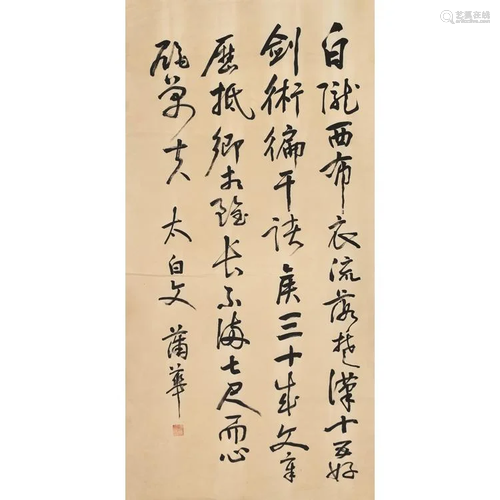 白隴西布衣流落楚漢十五好
劍術徧干諸侯三十成文章
歷抵卿相雖長不滿七尺而心
雄萬夫 太白文 蒲華
艺狐在线